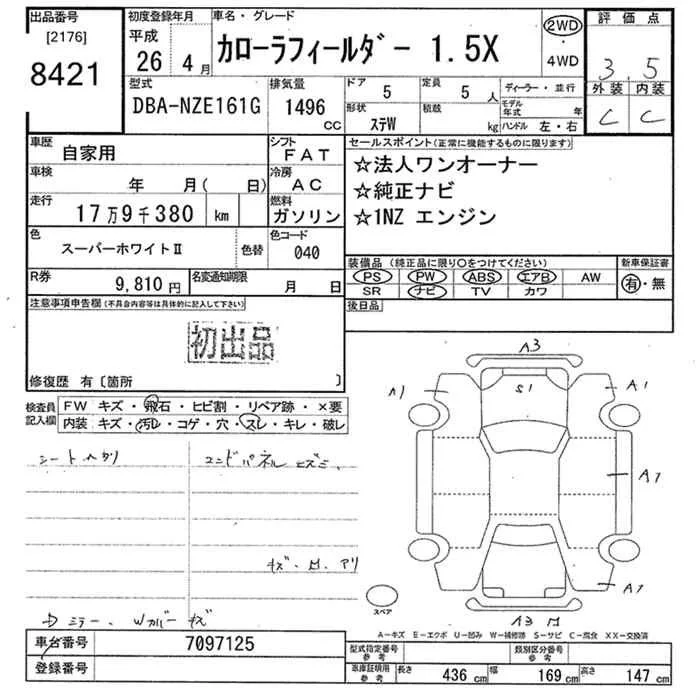 出品番号
[2176]
8421
初度登録年月
平成
26 4月
車名・グレード
カローラフィールダー 1.5X
2WD
・
4WD
評価点
3.5
外装 内装
C C
型式
DBA-NZE161G
排気量
1496
CC
ドア
5
定員
5 人
形状
ステW
積載
kg
ディーラー・並行
モデル年式 年
ハンドル 左・右
車歴
自家用
シフト
FAT
車検
年 月( 日)
冷房
AC
走行
17万9千380 km
燃料
ガソリン
色
スーパーホワイトⅡ
色替
色コード
040
R券
9,810円
名変通知期限
月 日
セールスポイント(正常に機能するものに限ります)
☆法人ワンオーナー
☆純正ナビ
☆1NZ エンジン
装備品(純正品に限り○をつけてください)
新車保証書
PS PW ABS エアB AW
SR ナビ TV カワ
有・無
後日品
注意事項申告欄(不具合内容等は具体的に記入して下さい)
初出品
修復歴 有〔箇所 〕
検査員
記入欄
FW キズ・飛石・ヒビ割・リペア跡・×要
内装 キズ・汚レ・コゲ・穴・スレ・キレ・破レ
シートヘタリ
キズ・凹 アリ
ミラー、Wカバー キズ
A3
A1
S1
A1
A1
A1
A3 凹
スペア
A-キズ E-エクボ U-凹み W-補修跡 S-サビ C-腐食 XX-交換済
車台番号
7097125
登録番号
型式指定番号
参考
類別区分番号
参考
車庫証明用
参考
長さ 436 cm
幅 169 cm
高さ 147 cm